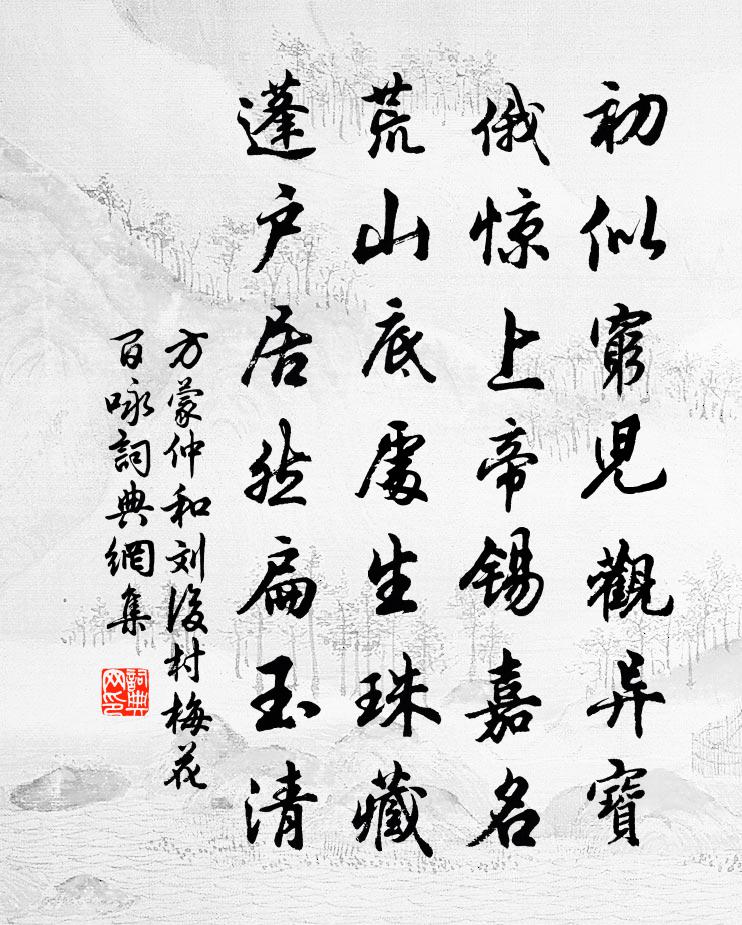 初似窮児觀异寶
俄惊上帝锡嘉名
荒山底處生珠藏
蓬户居然扁玉清
方蒙仲和刘後村梅花
百咏詞典網集
詞典
网印